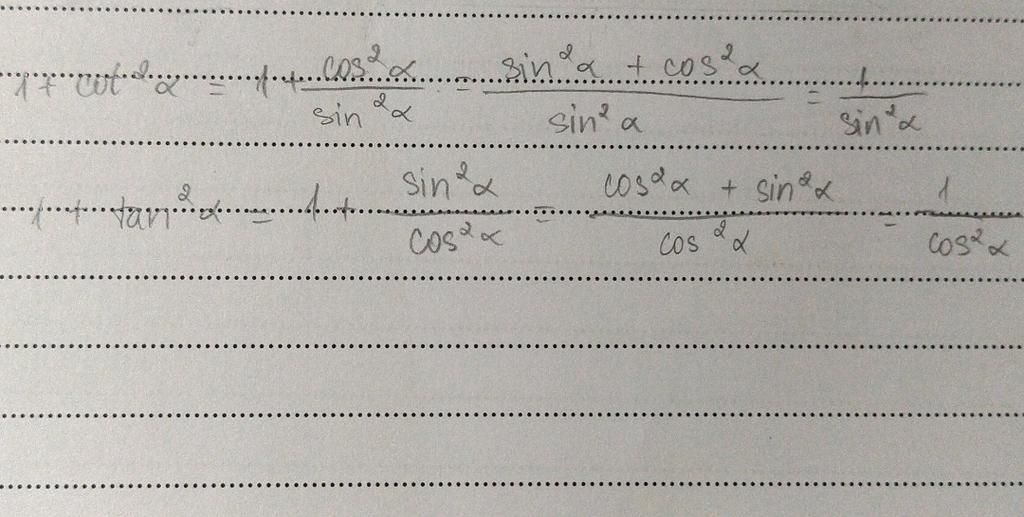 1 + cot²α = 1 + cos²α/sin²α = (sin²α + cos²α)/sin²α = 1/sin²α
1 + tan²α = 1 + sin²α/cos²α = (cos²α + sin²α)/cos²α = 1/cos²α